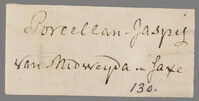 Porcellan-Jaspis
van Midweyda in Saxe
130.